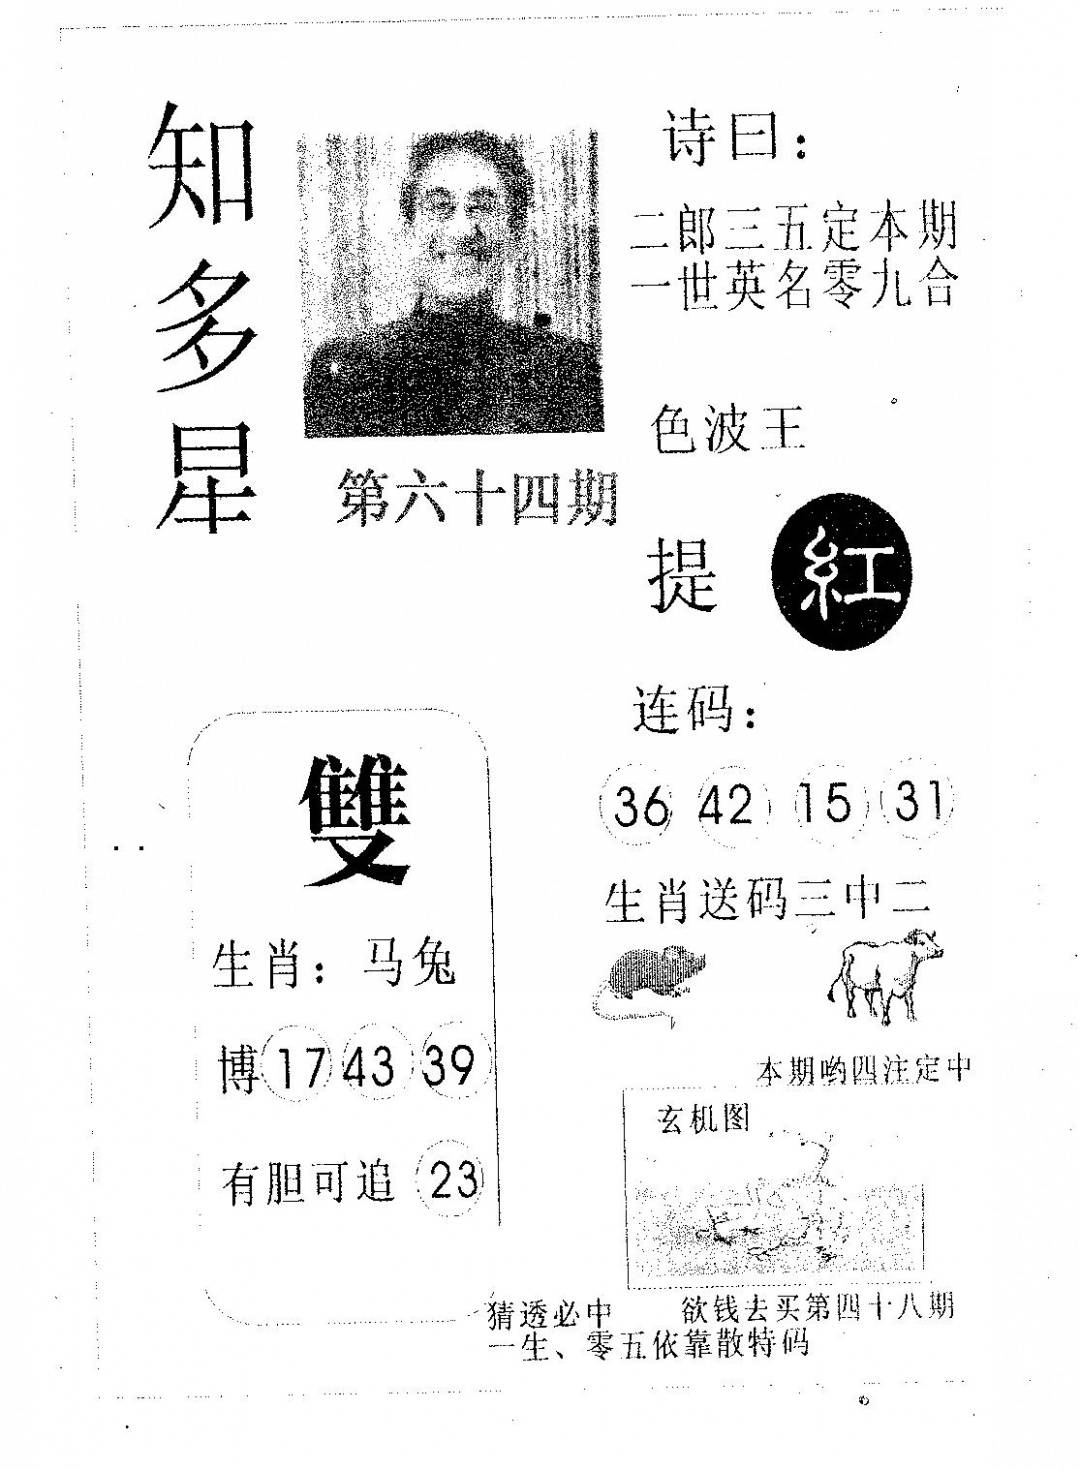 知多星
第六十四期
诗曰：
二郎三五定本期
一世英名零九合
色波王
提 紅
连码：
36 42 15 31
生肖送码三中二
本期哟四注定中
玄机图
雙
生肖：马兔
博 17 43 39
有胆可追 23
猜透必中 欲钱去买第四十八期
一生、零五依靠散特码